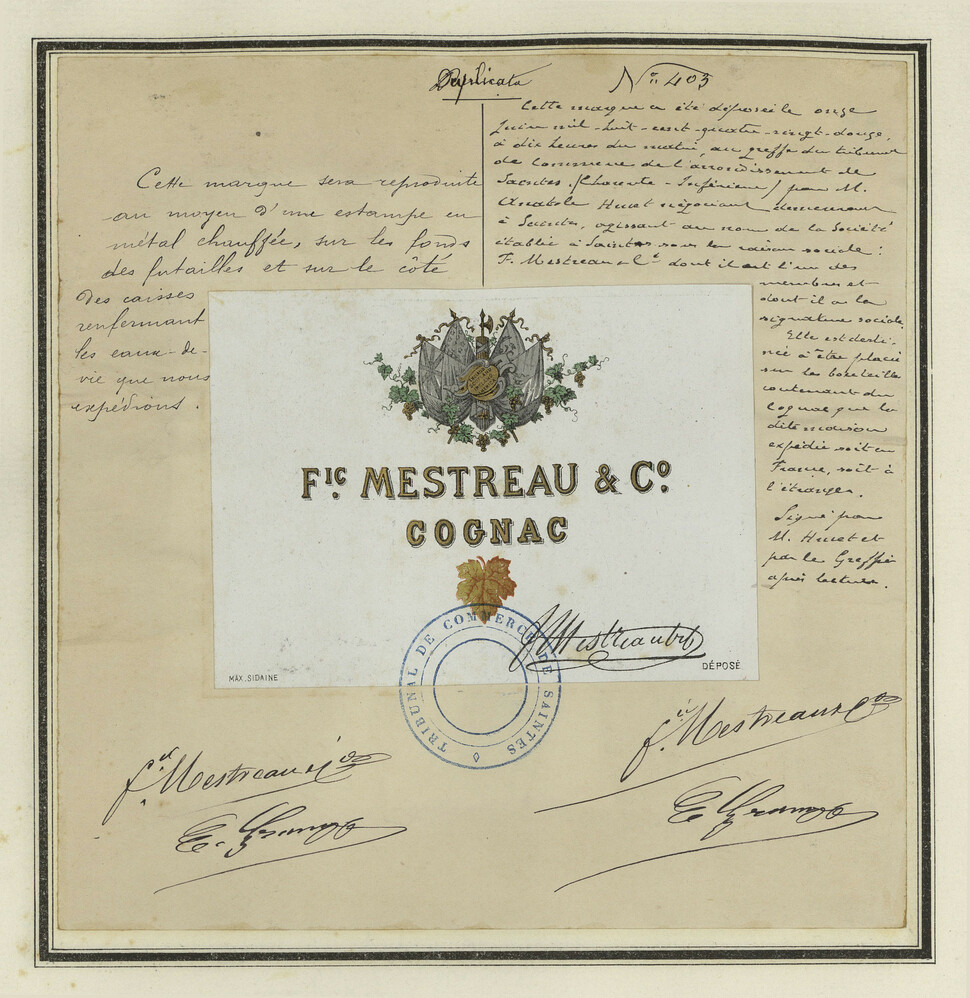 Duplicata
N° 403
Cette marque sera reproduite
au moyen d'une estampe en
métal chauffée, sur les fonds
des futailles et sur le côté
des caisses
renfermant
les eaux-de-
vie que nous
expédions.
Cette marque a été déposée le onze
Juin mil-huit-cent-quatre-vingt-douze,
à dix heures du matin, au greffe du tribunal
de Commerce de l'arrondissement de
Saintes. (Charente-Inférieure) par M.
Anatole Huet négociant demeurant
à Saintes, agissant au nom de la Société
établie à Saintes sous la raison sociale :
F. Mestreau & Cie dont il est l'un des
membres et
dont il a la
signature sociale.
Elle est desti-
née à être placée
sur les bouteilles
contenant du
Cognac que la
dite maison
expédie soit en
France, soit à
l'étranger.
Signé par
M. Huet et
par le Greffier
après lecture.
FIC. MESTREAU & CO.
COGNAC
MAX. SIDAINE
DÉPOSÉ
TRIBUNAL DE COMMERCE DE SAINTES
f. Mestreau & Co
f. Mestreau & Co